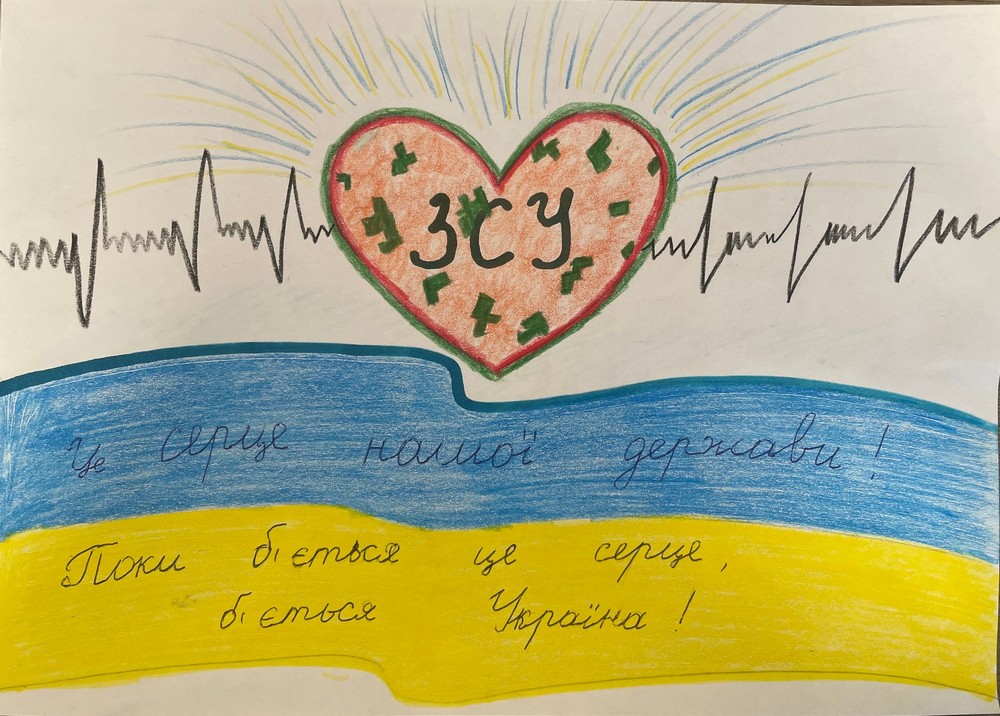 ЗСУ
Це серце нашої держави!
Поки біється це серце,
біється Україна!